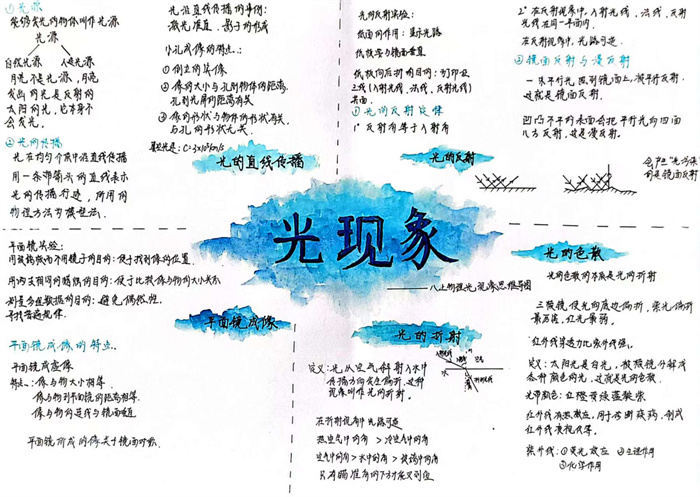 ①光源
能够发光的物体叫作光源
光源
自然光源 人造光源
月光不是光源，月亮
发出的光是反射的
太阳的光，它本身不
会发光。
②光的传播
光在均匀介质中沿直线传播
用一条带箭头的直线表示
光的传播行迹，所用的
物理方法为模型法。
光沿直线传播的事例：
激光准直、影子的形成
小孔成像的特点：
①倒立的实像
②像的大小与孔到物体的距离、
孔到光屏的距离有关
③像的形状与物体的形状有关，
与孔的形状无关
光的直线传播
光的反射实验：
纸面的作用：显示光路
纸板要与镜面垂直
纸板向后折的目的：判断
三线（入射光线、法线、反射光线）
共面。
①光的反射定律
1°反射角等于入射角
光的反射
2°在反射现象中，入射光线、法线、反射
光线在同一平面内。
在反射现象中，光路可逆。
②镜面反射与漫反射
一束平行光照到镜面上，被平行反射，
这就是镜面反射。
凹凸不平的表面会把平行光向四面
八方反射，这是漫反射。
的是镜面反射
光现象
——八上物理光现象思维导图
平面镜实验：
用玻璃板而不用镜子的目的：便于找到像的位置
用两支相同的蜡烛的目的：便于比较像与物的大小关系
测量多组数据的目的：避免偶然性，
寻找普遍规律。
平面镜成像
平面镜成像的特点。
平面镜成虚像
特点：像与物大小相等
像与物到平面镜的距离相等
像与物的连线与镜面垂直
平面镜所成的像关于镜面对称
光的折射
定义：光从空气斜射入水中
传播方向发生偏折，这种
现象叫作光的折射。
空气
水
在折射现象中光路可逆
热空气中的角 > 冷空气中的角
空气中的角 > 水中的角 > 玻璃中的角
光的色散
光的色散的本质是光的折射
三棱镜使光向底边偏折，紫光偏折
最厉害，红光最弱。
红外线穿透力比紫外线强。
定义：太阳光是白光，被棱镜分解成
各种颜色的光，这就是光的色散。
光带颜色：红橙黄绿蓝靛紫
红外线：热效应，用于诊断疾病，制成
红外线夜视仪等。
紫外线：①荧光效应 ②生理作用
③化学作用